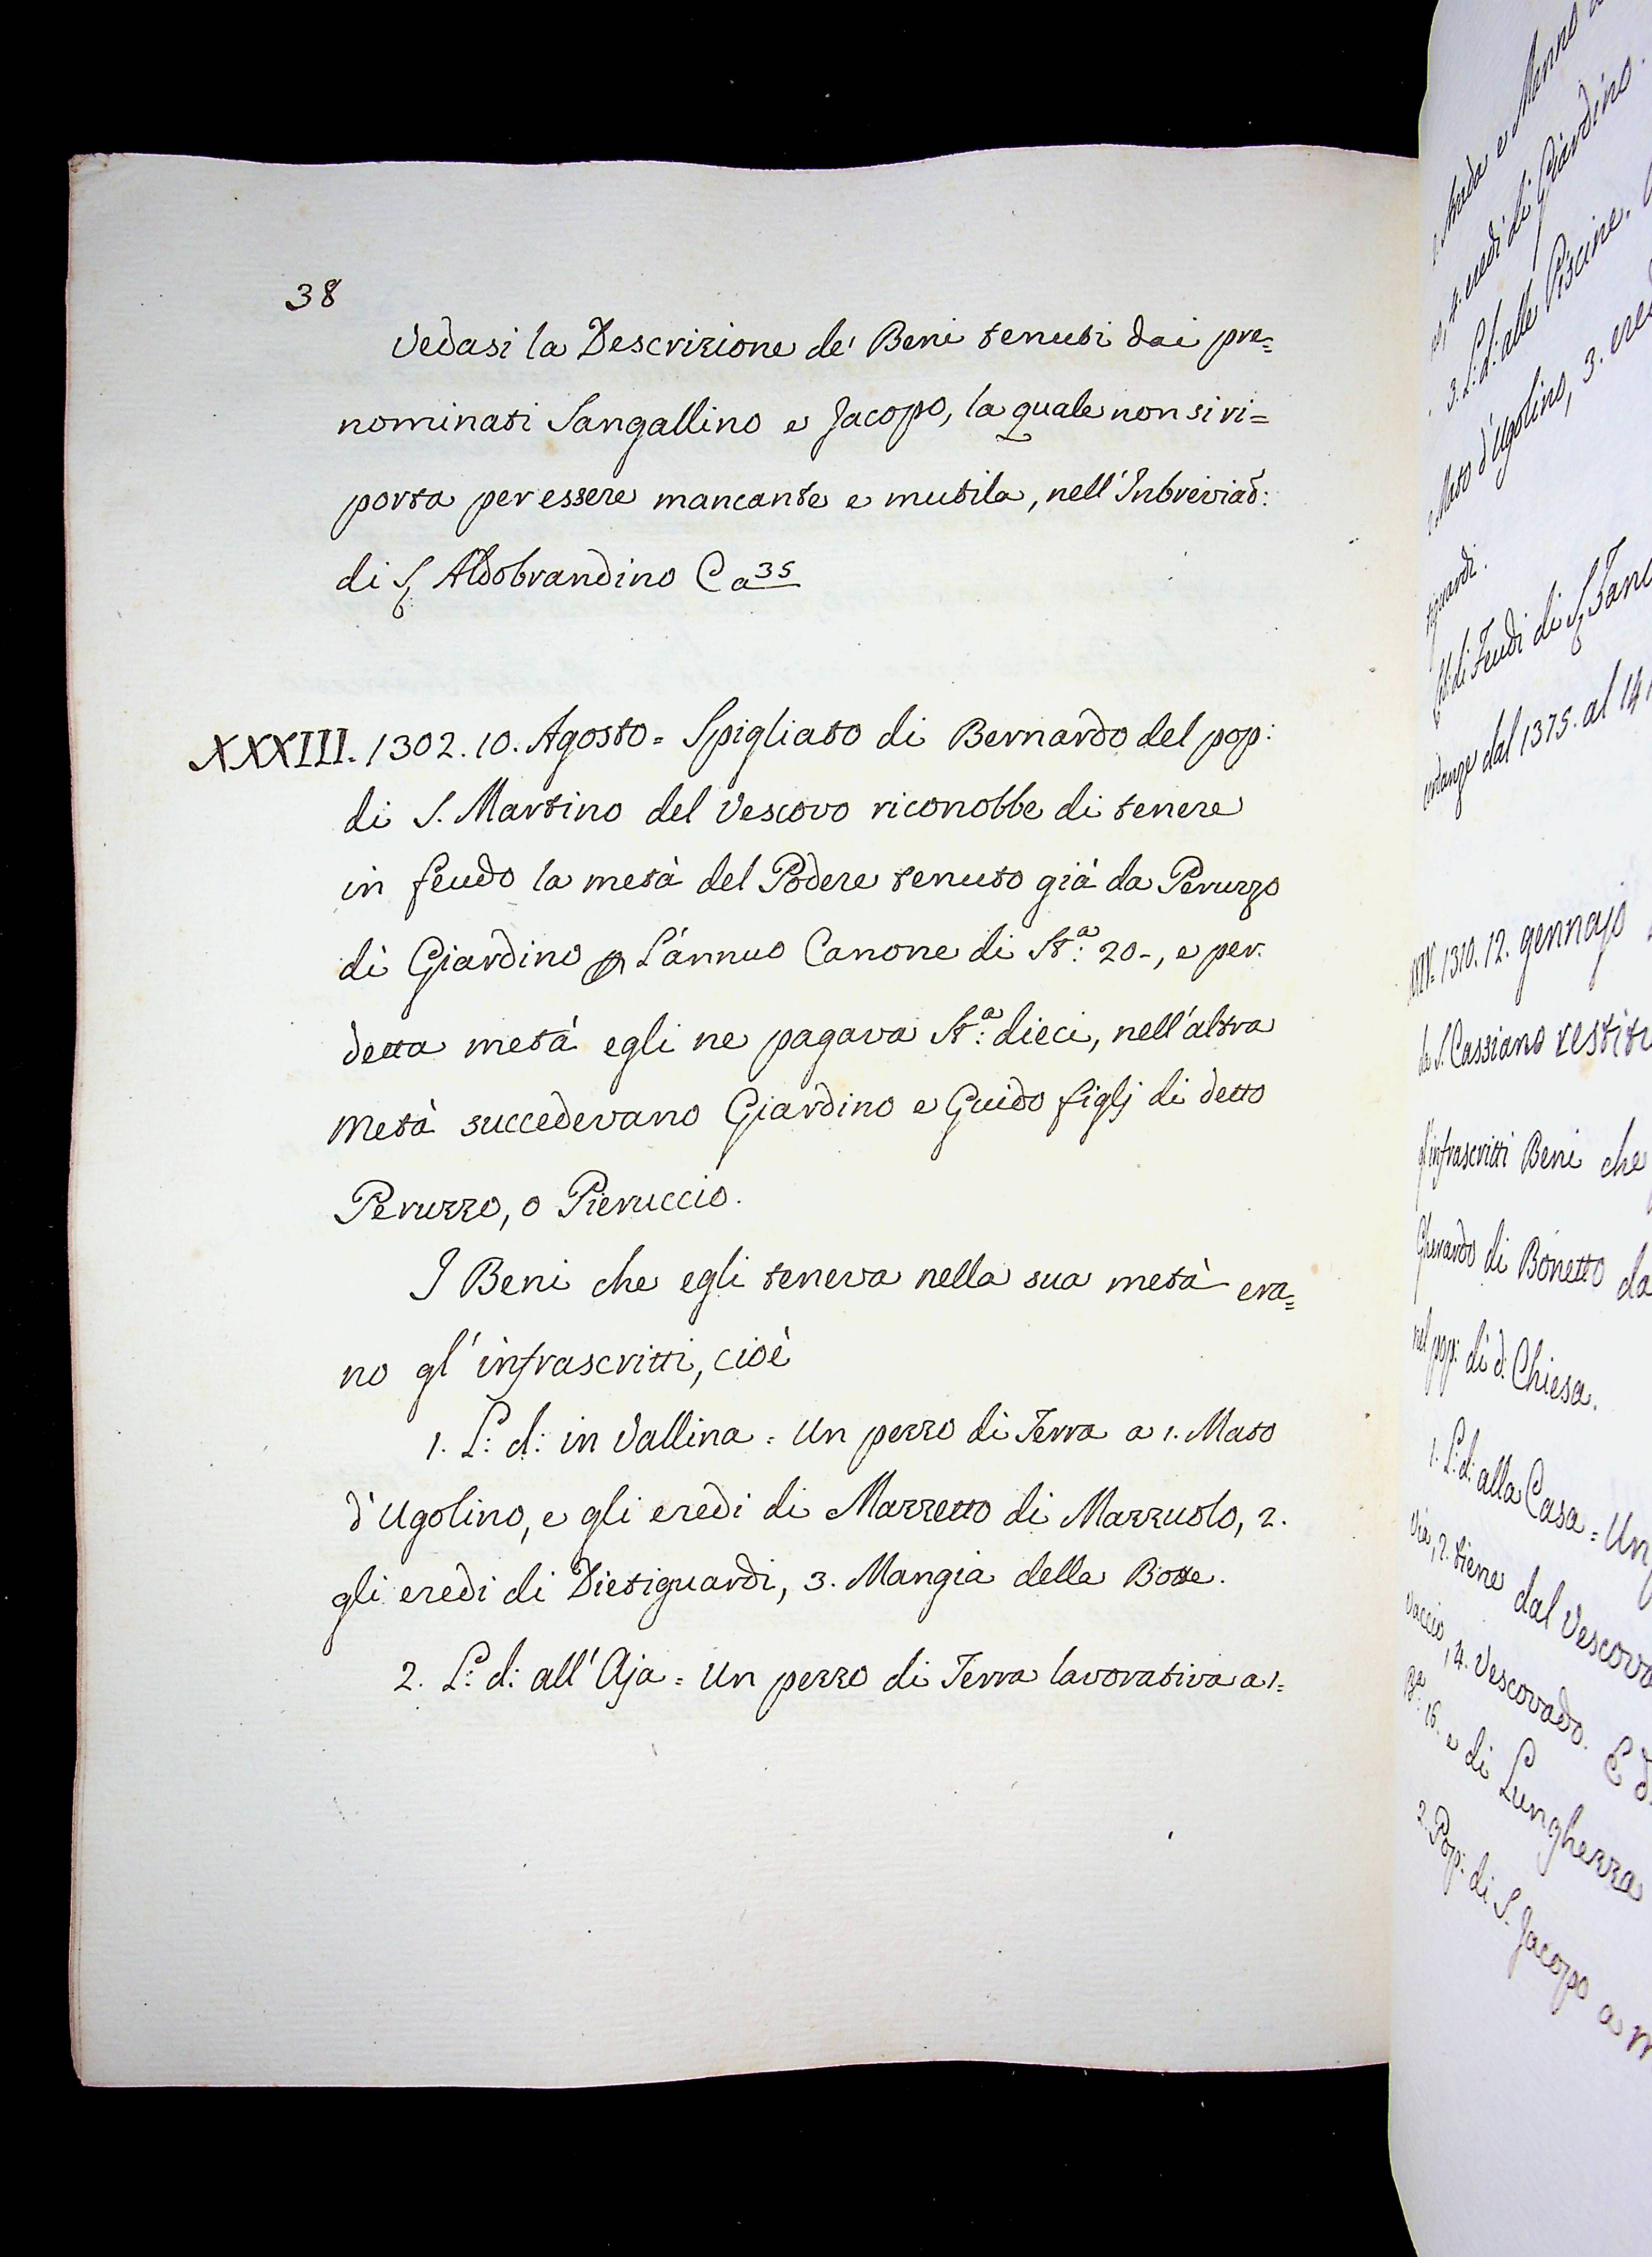 38
Vedasi la Descrizione de' Beni tenuti dai pre=
nominati Sangallino e Jacopo, la quale non si ri=
porta per essere mancante e mutila, nell'Inbreviat:
di S. Aldobrandino Ca 35
XXXIII. 1302. 10. Agosto = Spigliato di Bernardo del pop:
di S. Martino del Vescovo riconobbe di tenere
in feudo la metà del Podere tenuto già da Peruzzo
di Giardino p L'annuo Canone di St.ª 20-, e per
detta metà egli ne pagava St.ª dieci, nell'altra
Metà succedevano Giardino e Guido figlj di detto
Peruzzo, o Pieruccio.
I Beni che egli teneva nella sua metà era=
no gl'infrascritti, cioè
1. L: d: in Vallina = Un pezzo di Terra a 1. Maso
d'Ugolino, e gli eredi di Mazzetto di Mazzuolo, 2.
gli eredi di Dietiguardi, 3. Mangia della Botte.
2. L: d: all'Aja = Un pezzo di Terra lavorativa a 1=
e Manno
4. eredi di Giardino.
3. L: d: alle Piscine.
Maso d'Ugolino, 3. ere
tiguardi.
di Feudi di S.
dal 1375. al 14
1310. 12. gennajo
S. Cassiano restit
gl'infrascritti Beni che
Gherardo di Bonetto da
nel pop: di d: Chiesa.
1. L: d: alla Casa = Un
Via, 2. tiene dal Vescovo
4. Vescovado. E d
16. e di Lunghezza
2. Pop: di S. Jacopo a M